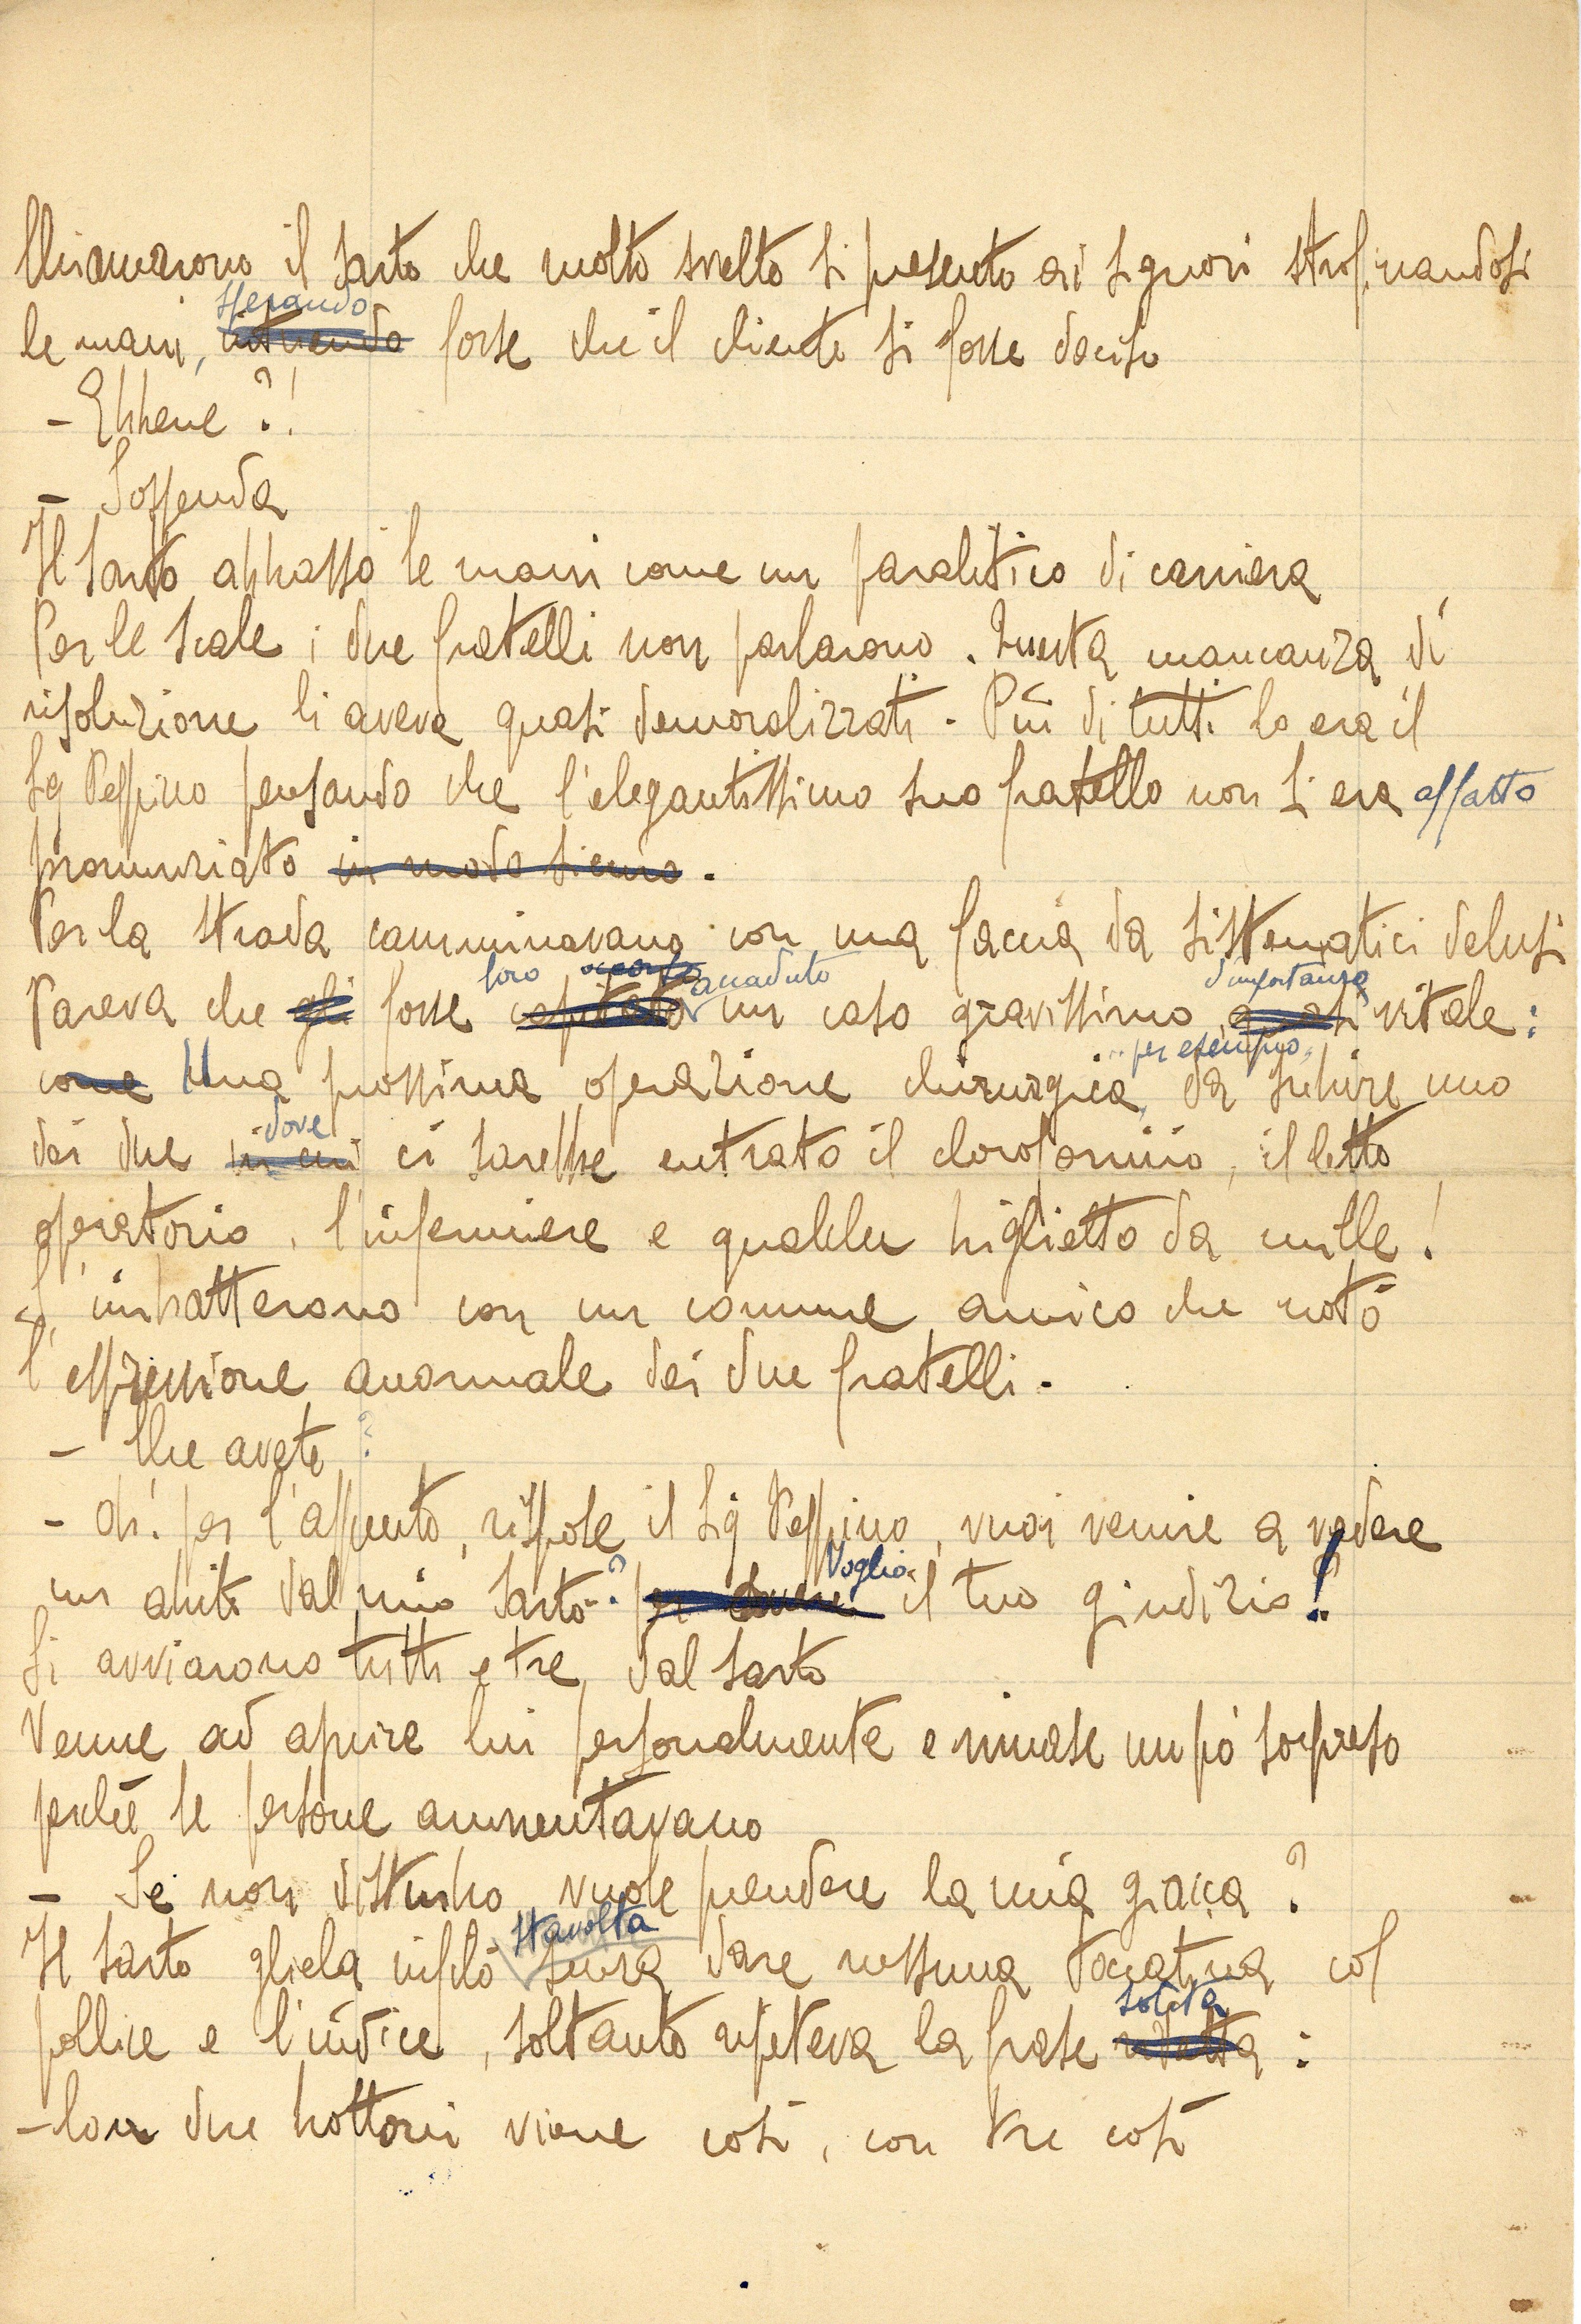 Chiamarono il sarto che molto svelto si presentò ai signori strofinandosi
sperando
le mani, intuendo forse che il cliente si fosse deciso
- Ebbene?!
- Sospenda
Il sarto abbassò le mani come un paralitico di carriera
Per le scale i due fratelli non parlarono. Questa mancanza di
risoluzione li aveva quasi demoralizzati. Più di tutti lo era il
Sig Peppino pensando che l'elegantissimo suo fratello non si era affatto
pronunziato in modo sicuro.
Per la strada camminavano con una faccia da sistematici delusi
loro accaduto d'importanza
Pareva che gli fosse capitato un caso gravissimo quasi vitale:
per esempio,
come Una prossima operazione chirurgica, da subire uno
dove
dei due in cui ci sarebbe entrato il cloroformio, il letto
operatorio, l'infermiere e qualche biglietto da mille!
S'imbatterono con un comune amico che notò
l'espressione anormale dei due fratelli.
- Che avete?
- Oh! per l'appunto, rispose il Sig Peppino, vuoi venire a vedere
Voglio
un abito dal mio sarto? per avere il tuo giudizio!
Si avviarono tutti e tre dal sarto
Venne ad aprire lui personalmente e rimase un pò sorpreso
perchè le persone aumentavano
- Se non disturbo vuole prendere la mia giacca?
stavolta
Il sarto gliela infilò senza dare nessuna toccatina col
solita
pollice e l'indice, soltanto ripeteva la frase :
- Con due bottoni viene così, con tre così